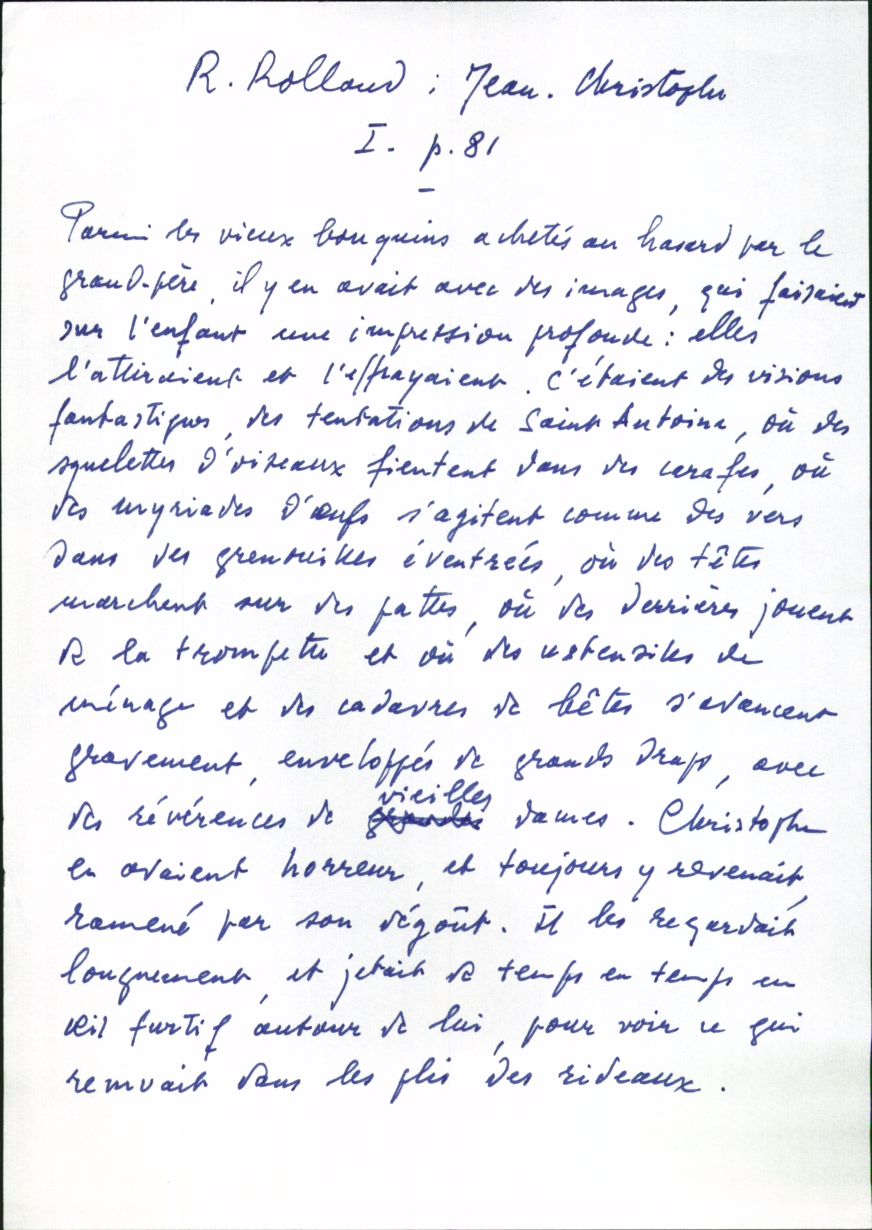 R. Rolland : Jean. Christophe
I. p. 81
Parmi les vieux bouquins achetés au hasard par le
grand-père, il y en avait avec des images, qui faisaient
sur l'enfant une impression profonde : elles
l'attiraient et l'effrayaient. C'étaient des visions
fantastiques, des tentations de Saint Antoine, où des
squelettes d'oiseaux fientent dans des carafes, où
des myriades d'œufs s'agitent comme des vers
dans des grenouilles éventrées, où des têtes
marchent sur des pattes, où des derrières jouent
de la trompette et où des ustensiles de
ménage et des cadavres de bêtes s'avancent
gravement, enveloppés de grands draps, avec
vieilles
des révérences de grandes dames. Christophe
en avaient horreur, et toujours y revenait,
ramené par son dégoût. Il les regardait
longuement, et jetait de temps en temps un
œil furtif autour de lui, pour voir ce qui
remuait dans les plis des rideaux.